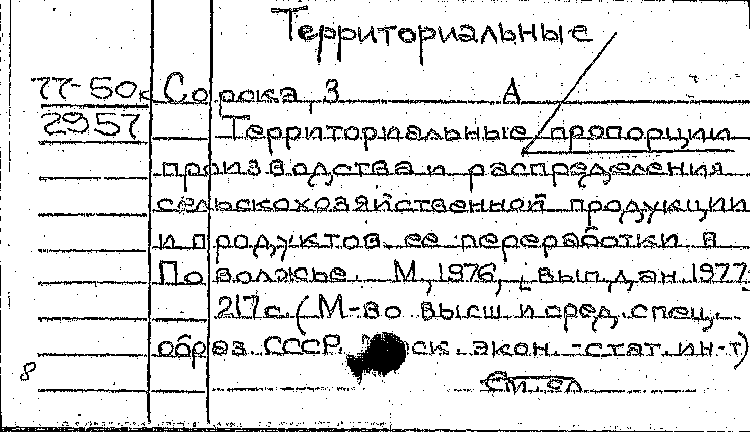 Территориальные
77-50 Сорока, З А
2957 Территориальные пропорции
производства и распределения
сельскохозяйственной продукции
и продуктов ее переработки в
Поволжье. М, 1976, вып.дан.1977.
217с. (М-во высш и сред. спец.
образ. СССР. ск. экон. -стат. ин-т)
8